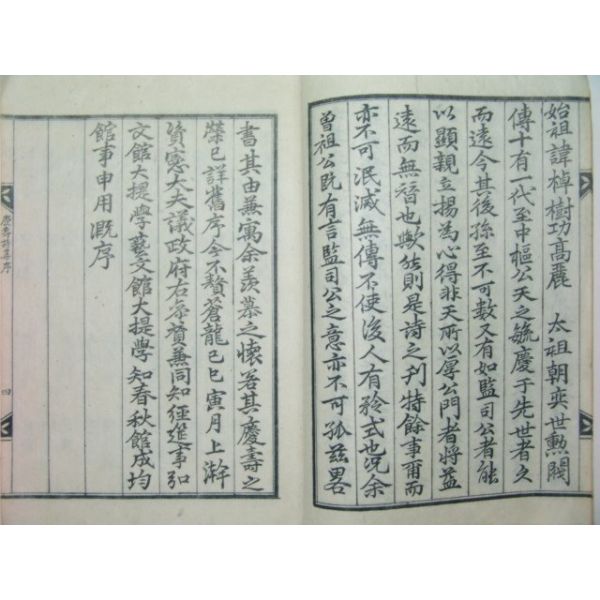 始祖諱棹樹功高麗 太祖朝奕世勲閥
傳十有一代至中樞公天之毓慶于先世者久
而遠今其後孫至不可數又有如監司公者能
以顯親立揚為心得非天所以厚公門者將益
遠而無替也歟然則是詩之刊特餘事爾而
亦不可泯滅無傳不使後人有矜式也况余
曽祖公旣有言監司公之意亦不可孤茲畧
書其由兼寓余羨慕之懷若其慶壽之
榮已詳舊序今不贅蒼龍己巳寅月上澣
資憲大夫議政府右參贊兼同知經筵事弘
文館大提學藝文館大提學知春秋館成均
館事申用漑序
慶壽詩集序
四